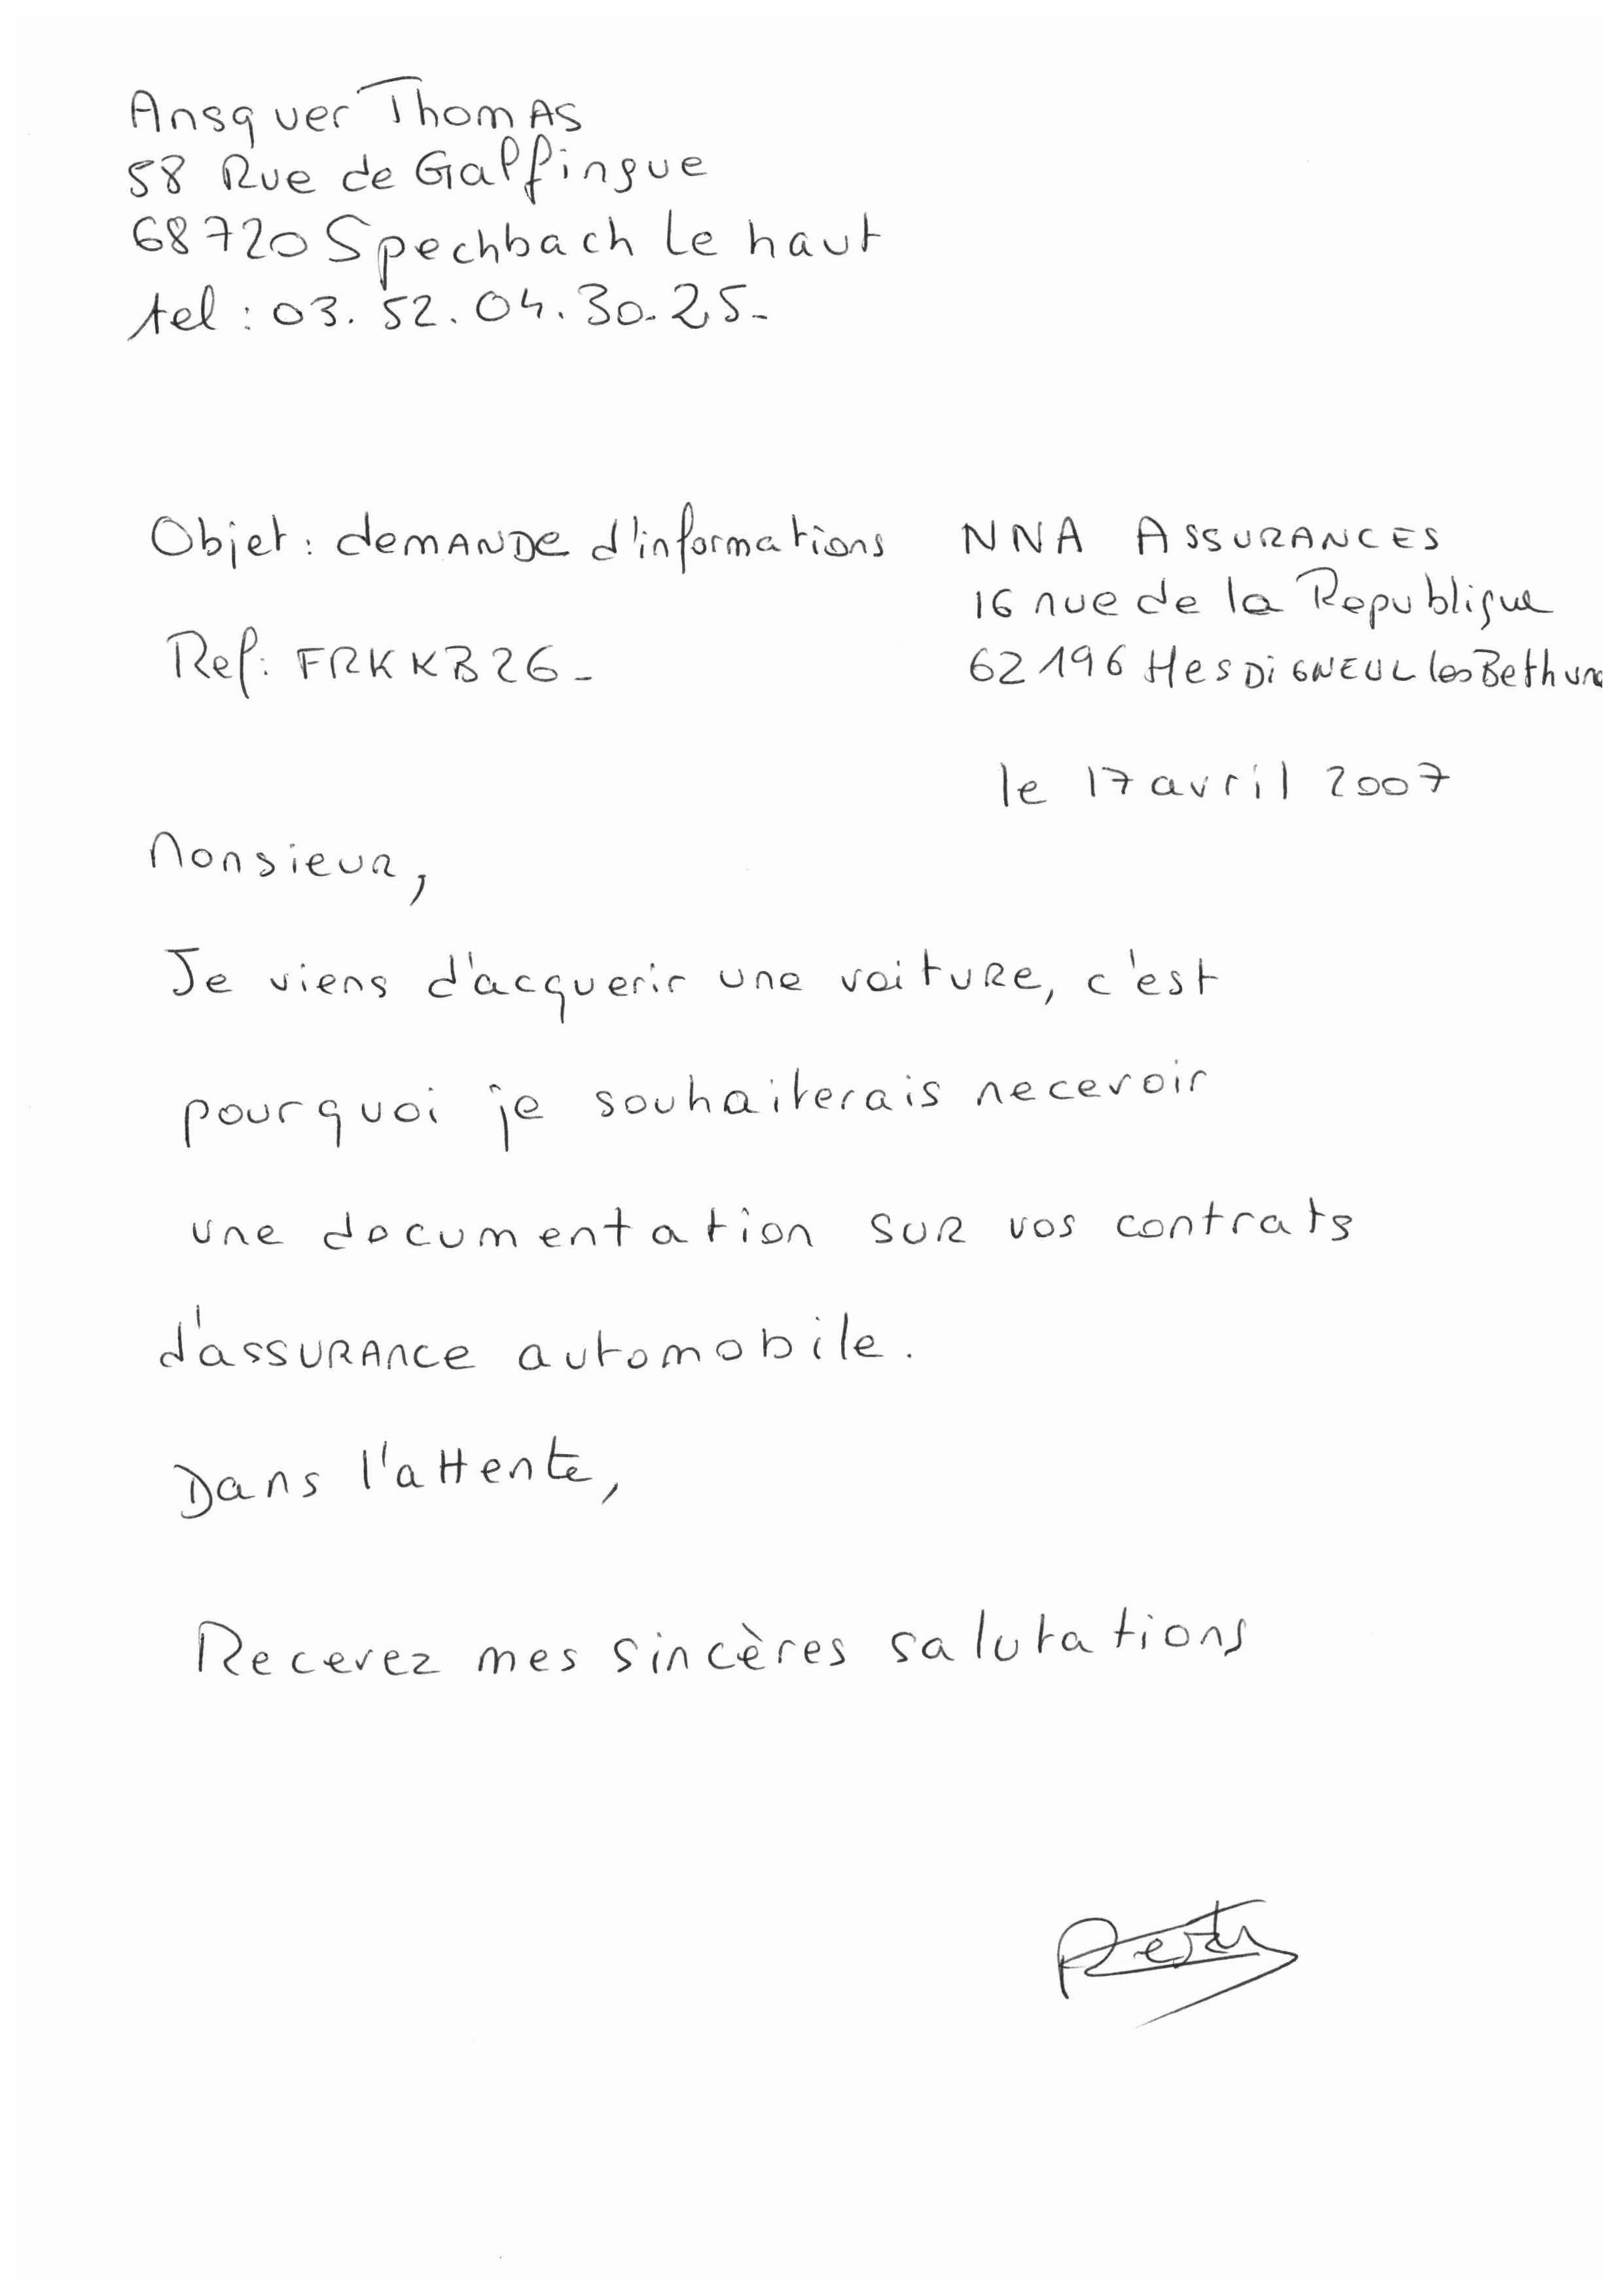 Ansquer Thomas
58 Rue de Galfingue
68720 Spechbach Le haut
tel : 03.52.04.30.25.
Objet : demande d'informations
NNA ASSURANCES
16 rue de la Republique
Ref : FRKKB26-
62196 Hesdigneul les Bethune
le 17 avril 2007
Monsieur,
Je viens d'acquerir une voiture, c'est
pourquoi je souhaiterais recevoir
une documentation sur vos contrats
d'assurance automobile.
Dans l'attente,
Recevez mes sincères salutations